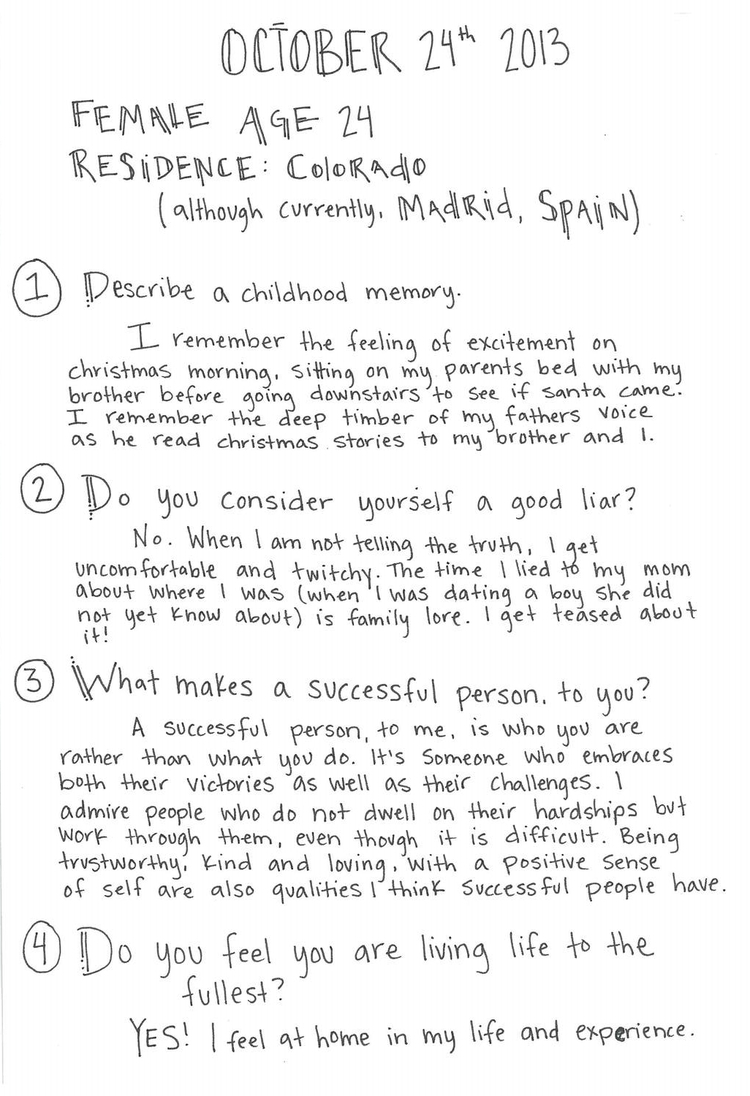 OCTOBER 24th 2013
FEMALE AGE 24
RESIDENCE: COLORADO
(although currently, MADRID, SPAIN)
1 Describe a childhood memory.
I remember the feeling of excitement on
christmas morning, sitting on my parents bed with my
brother before going downstairs to see if santa came.
I remember the deep timber of my fathers voice
as he read christmas stories to my brother and I.
2 Do you consider yourself a good liar?
No. When I am not telling the truth, I get
uncomfortable and twitchy. The time I lied to my mom
about where I was (when I was dating a boy she did
not yet know about) is family lore. I get teased about
it!
3 What makes a successful person, to you?
A successful person, to me, is who you are
rather than what you do. It's someone who embraces
both their victories as well as their challenges. I
admire people who do not dwell on their hardships but
work through them, even though it is difficult. Being
trustworthy, kind and loving, with a positive sense
of self are also qualities I think successful people have.
4 Do you feel you are living life to the
fullest?
YES! I feel at home in my life and experience.